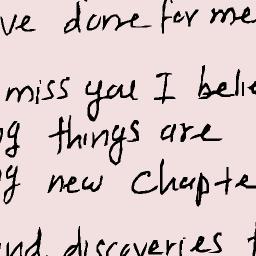 ve done for me
miss you I beli
g things are
g new chapte
nd discoveries t